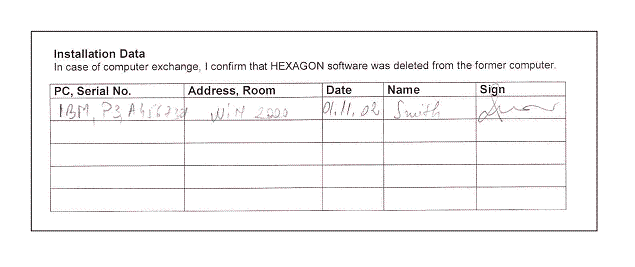 Installation Data
In case of computer exchange, I confirm that HEXAGON software was deleted from the former computer.
PC, Serial No. Address, Room Date Name Sign
IBM, P3, WiN 2000 01.11.02 Smith